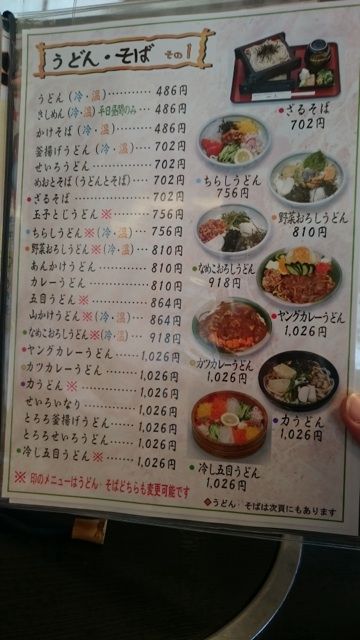 うどん・そば その1
うどん(冷・温)………… 486円
きしめん(冷・温)平日昼間のみ… 486円
かけそば(冷・温)……… 486円
釜揚げうどん(冷・温)…… 702円
せいろうどん…………… 702円
めおとそば(うどんとそば)… 702円
●ざるそば……………… 702円
玉子とじうどん※……… 756円
●ちらしうどん※(冷・温)… 756円
●野菜おろしうどん※(冷・温)… 810円
あんかけうどん………… 810円
カレーうどん…………… 810円
五目うどん※…………… 864円
山かけうどん※(冷・温)… 864円
●なめこおろしうどん※(冷・温)… 918円
●ヤングカレーうどん…… 1,026円
●カツカレーうどん……… 1,026円
●力うどん※…………… 1,026円
せいろいなり…………… 1,026円
とろろ釜揚げうどん…… 1,026円
とろろせいろうどん…… 1,026円
●冷し五目うどん※……… 1,026円
※印のメニューはうどん・そばどちらも変更可能です
●ざるそば
702円
●ちらしうどん
756円
●野菜おろしうどん
810円
●なめこおろしうどん
918円
●ヤングカレーうどん
1,026円
●カツカレーうどん
1,026円
●力うどん
1,026円
●冷し五目うどん
1,026円
◆うどん・そばは次頁にもあります